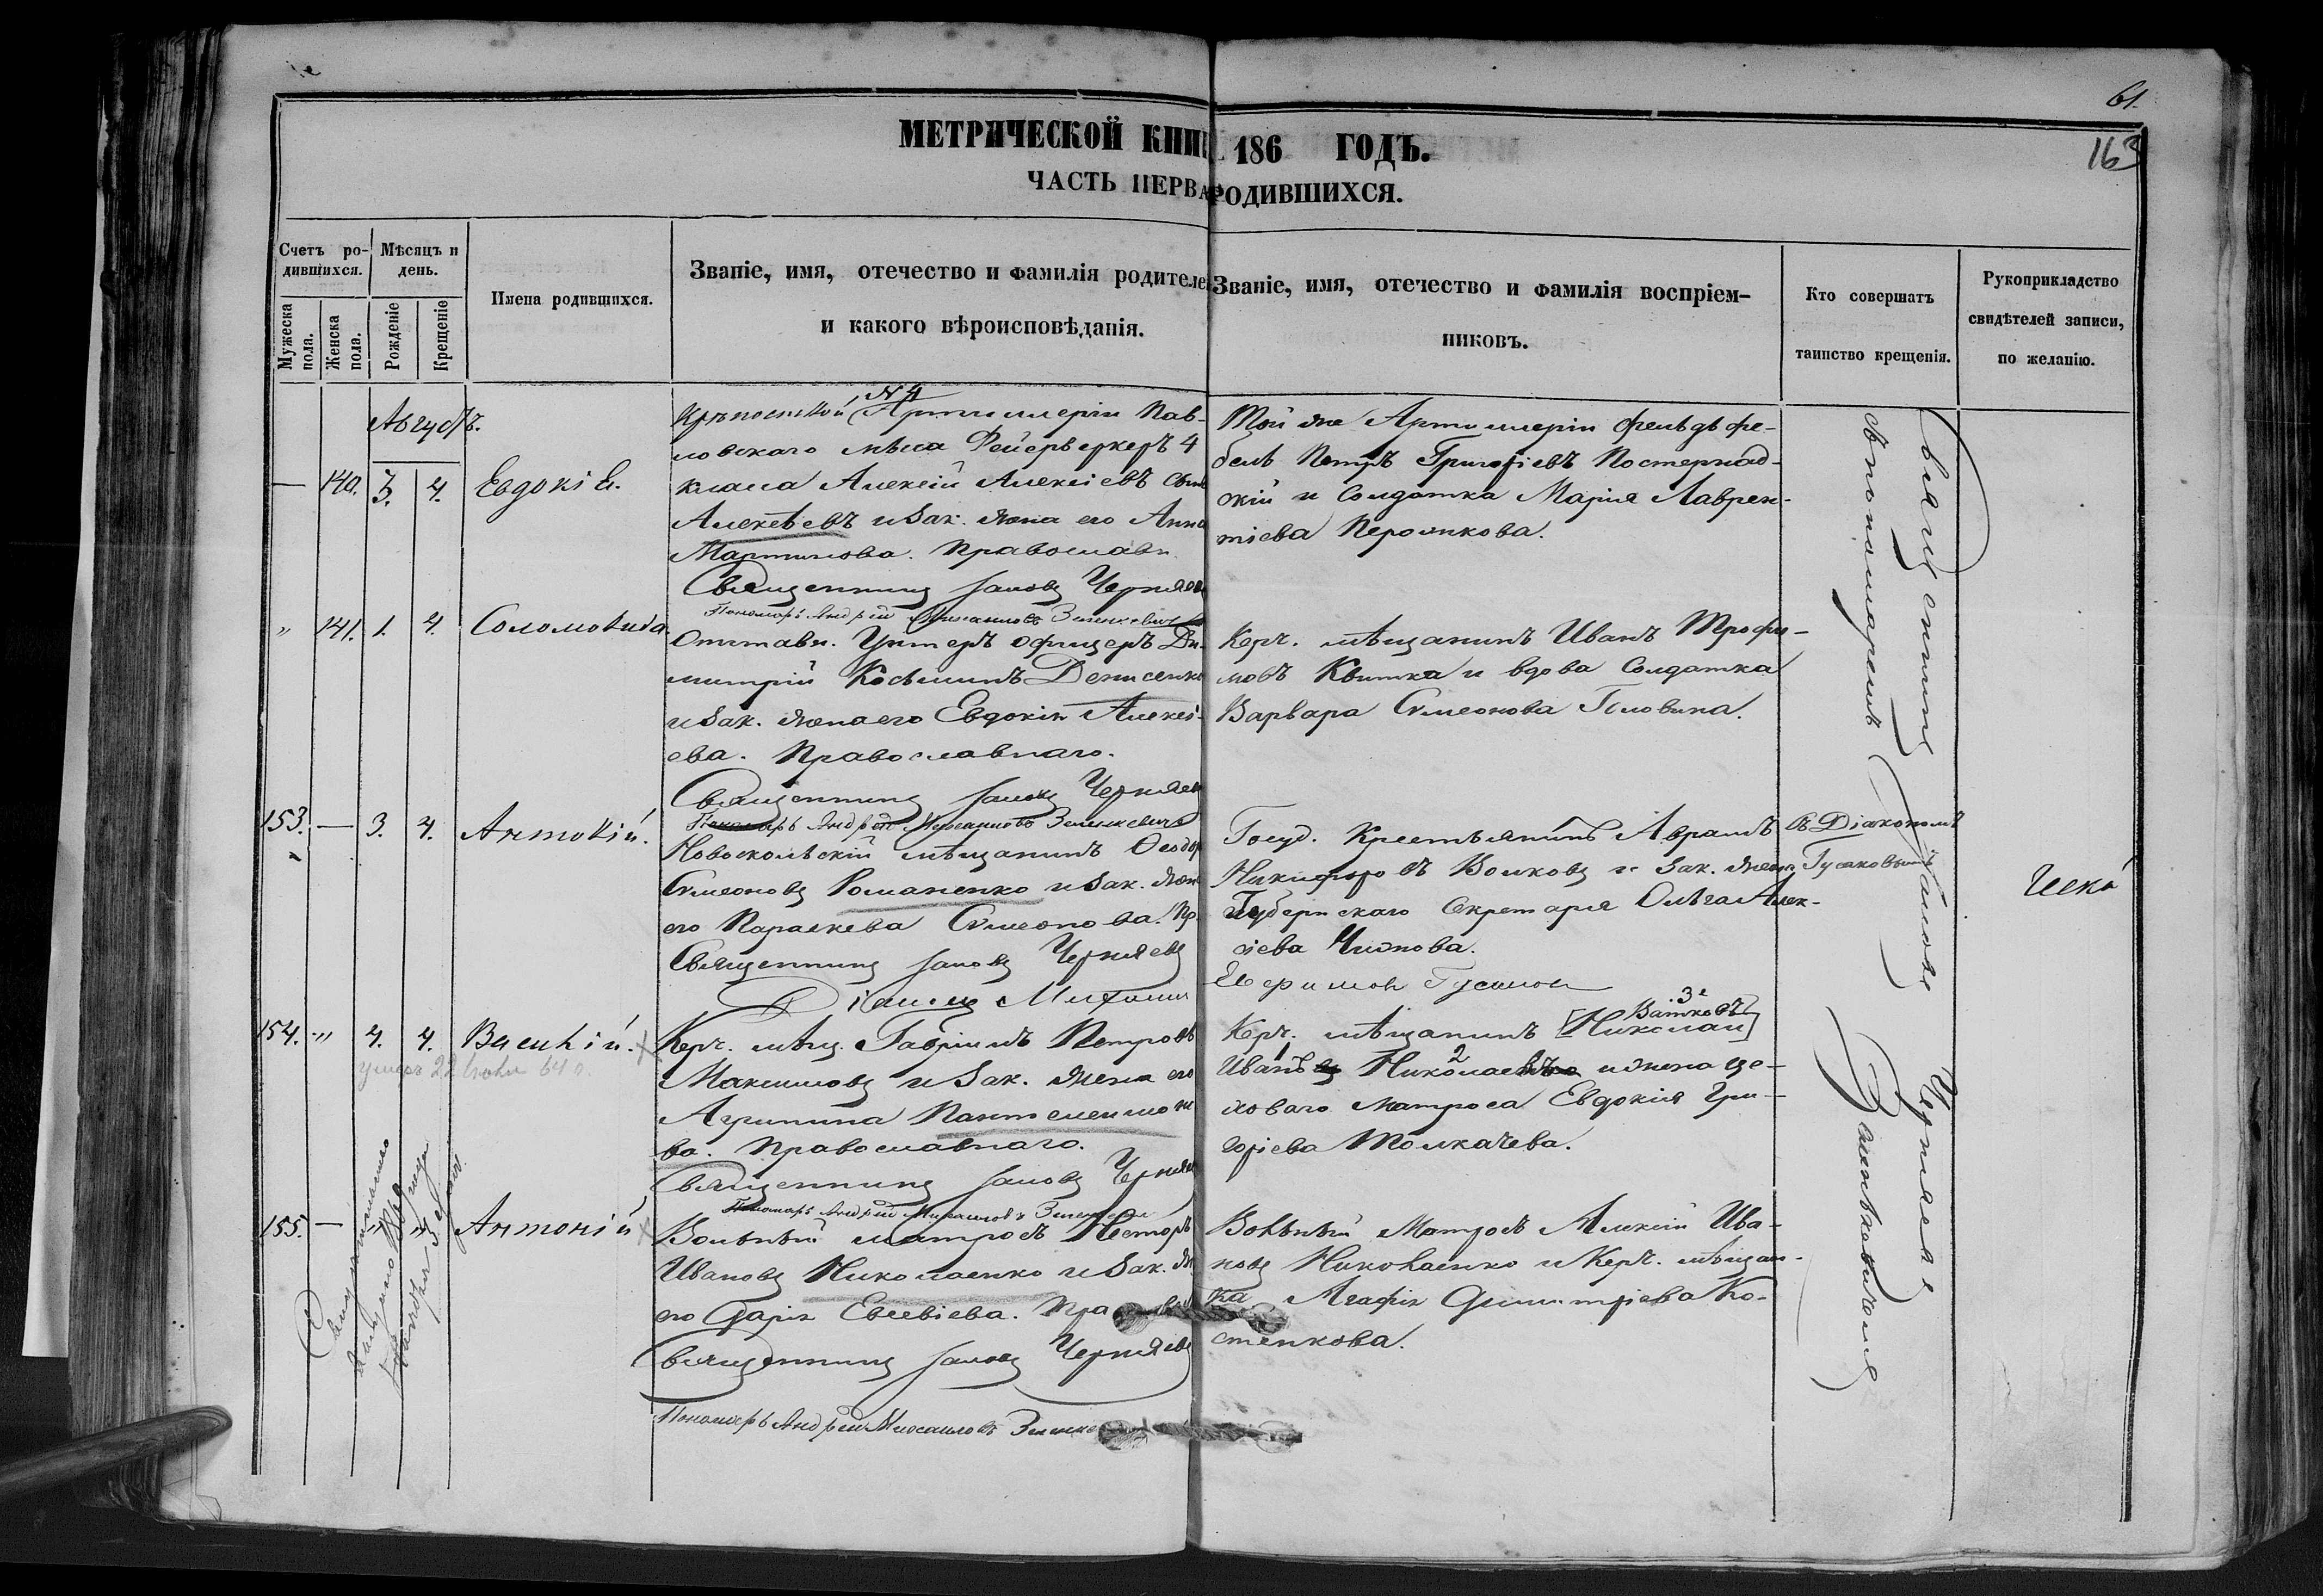 61.
163
МЕТРИЧЕСКОЙ КНИГ 186 ГОДЪ.
ЧАСТЬ ПЕРВА РОДИВШИХСЯ.
Счетъ ро-
дившихся.
Мужеска пола.
Женска пола.
Мѣсяцъ и
день.
Рожденіе
Крещеніе
Имена родившихся.
Званіе, имя, отечество и фамилія родителе
и какого вѣроисповѣданія.
Званіе, имя, отечество и фамилія воспріем-
никовъ.
Кто совершатъ
таинство крещенія.
Рукоприкладство
свидѣтелей записи,
по желанію.
Августъ.
— 140. 3. 4. Евдокія.
Крѣпостной № 4 Артиллеріи Пав-
ловскаго мыса Фейерверкеръ 4
класа Алексій Алексіевъ
Алексѣевъ и зак. жена его Анна
Мартинова. Православн.
Священникъ Іаковъ Черняев
Пономарь Андрей Мисаиловъ Зеленкевичъ
Той же Артиллеріи фельдфе-
бель Петръ Григоріевъ Постернад-
скій и Солдатка Марія Лаврен-
тіева
„ 141. 1. 4. Соломонида.
Отставн. Унтеръ офицеръ Ди-
митрій Косьминъ Денисенко
и зак. жена его Евдокія Алексі-
ева. Православнаго.
Священникъ Іаковъ Черняев
Пономарь Андрей Мисаиловъ Зеленкевичъ
Керч. мѣщанинъ Иванъ Трофи-
мовъ Квитка и вдова Солдатка
Варвара Симеонова Головина.
153. — 3. 4. Антоній.
Новооскольскій мѣщанинъ Ѳеодор
Симеоновъ Романенко и зак. жен
его Параскева Симеонова. Пр.
Священникъ Іаковъ Черняевъ
Госуд. Крестьянинъ Аврамъ
Никифоровъ Волковъ и зак. жена
Губернскаго Секретаря Ольга Алек-
сіева Чижова.
съ Діакономъ
Гусаковымъ
154. „ 4. 4. Василій.
умеръ 22 64 г.
Керч. мѣщ. Гавріилъ Петровъ
Максимовъ и зак. жена его
Агрипина Пантелеимоно
ва. Православнаго.
Священникъ Іаковъ Черняев
Пономарь Андрей Мисаиловъ
Керч. мѣщанинъ [Николай] 3
Иванъ 2 Николаевъ и жена це-
ховаго матроса Евдокія Гри-
горіева Толкачева.
155. — 4. 4. Антоній
Вольный матросъ Несторъ
Ивановъ Николаенко и зак. ж
его Дарія Евсевіева. Пра
Священникъ Іаковъ Черняевъ
Пономарь Андрей Мисаиловъ Зеленке
Вольный Матросъ Алексій Ива-
новъ Николаенко и Керч. мѣщан-
ка Агафія Димитріева Ко-
стенкова.
Священникъ Іаковъ Черняевъ
съ пономаремъ Зеленкевичемъ